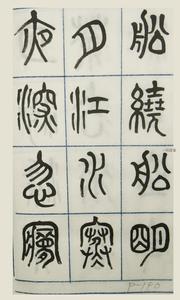 船繞船明
月江水寒
夜深忽夢
P-190